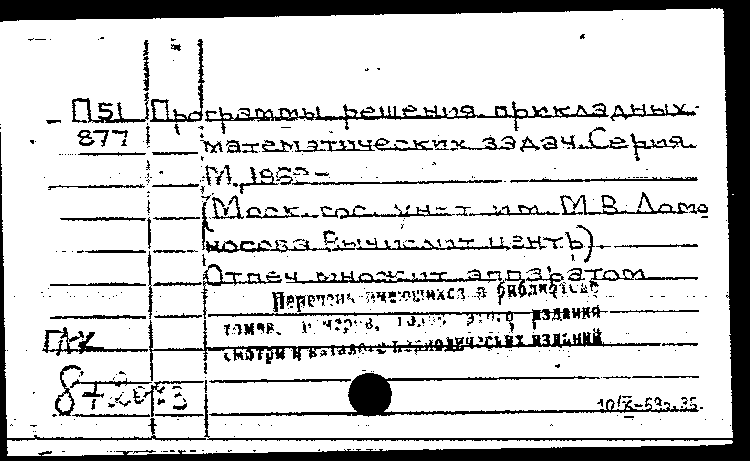 П51 Программы решения прикладных
877 математических задач. Серия.
М., 196 -
(Моск. гос. ун-т им. М.В. Ломо
носова Вычислит центр).
Отпеч множит аппаратом
Перечень имеющихся в библиотеке
томов, номеров, годов этого издания
смотри в каталоге периодических изданий